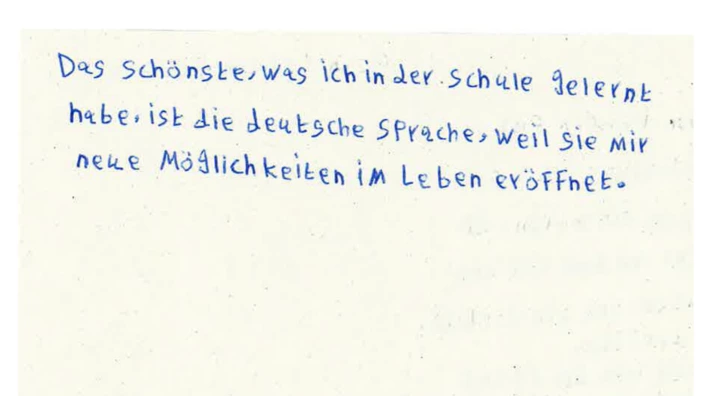 Das schönste, was ich in der Schule gelernt
habe, ist die deutsche Sprache, weil sie mir
neue Möglichkeiten im Leben eröffnet.